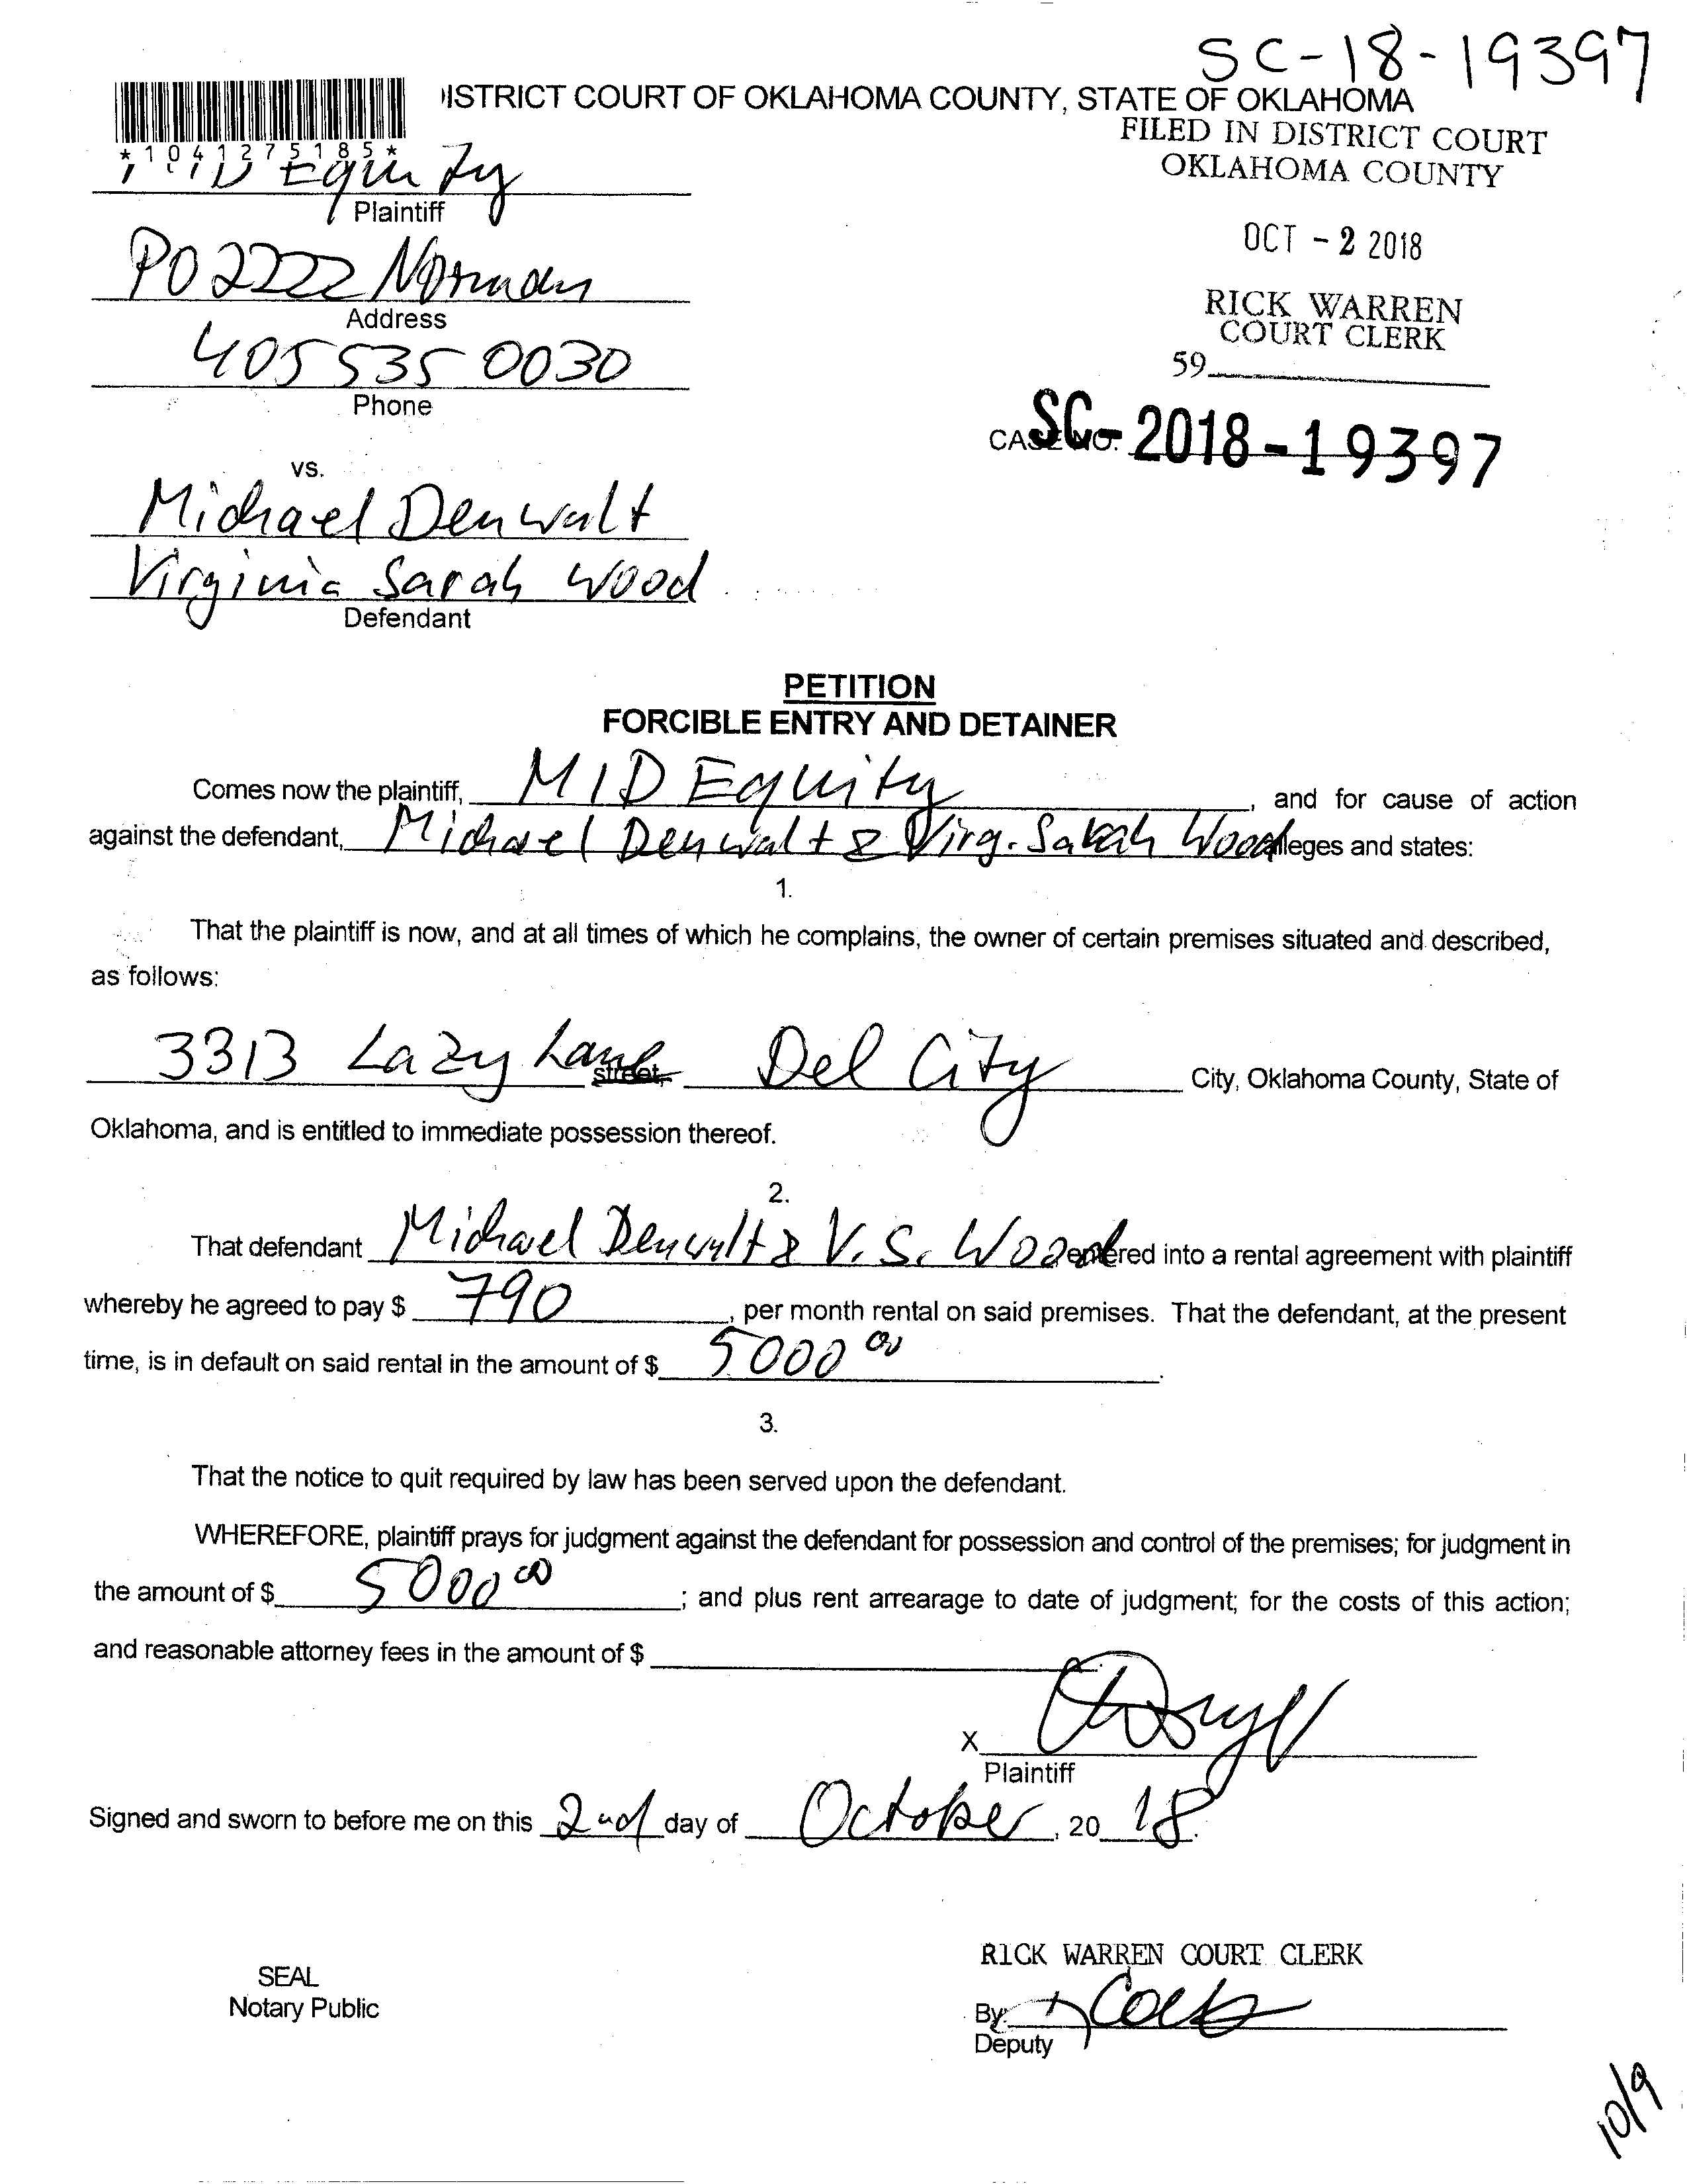 SC-18-19397
ISTRICT COURT OF OKLAHOMA COUNTY, STATE OF OKLAHOMA
FILED IN DISTRICT COURT
OKLAHOMA COUNTY
*1041275185*
MID Equity
Plaintiff
OCT - 2 2018
PO 2222 Norman
Address
RICK WARREN
COURT CLERK
59
405 535 0030
Phone
CASE NO. SC-2018-19397
vs.
Michael Denwalt
Virginia Sarah Wood
Defendant
PETITION
FORCIBLE ENTRY AND DETAINER
Comes now the plaintiff, MID Equity, and for cause of action
against the defendant, Michael Denwalt & Virg. Sarah Wood alleges and states:
1.
That the plaintiff is now, and at all times of which he complains, the owner of certain premises situated and described,
as follows:
3313 Lazy Lane street, Del City City, Oklahoma County, State of
Oklahoma, and is entitled to immediate possession thereof.
2.
That defendant Michael Denwalt & V. S. Wood entered into a rental agreement with plaintiff
whereby he agreed to pay $ 790, per month rental on said premises. That the defendant, at the present
time, is in default on said rental in the amount of $ 5000 00.
3.
That the notice to quit required by law has been served upon the defendant.
WHEREFORE, plaintiff prays for judgment against the defendant for possession and control of the premises; for judgment in
the amount of $ 5000 00; and plus rent arrearage to date of judgment; for the costs of this action;
and reasonable attorney fees in the amount of $
X
Plaintiff
Signed and sworn to before me on this 2nd day of October, 20 18.
RICK WARREN COURT CLERK
SEAL
Notary Public
By:
Deputy
10/9